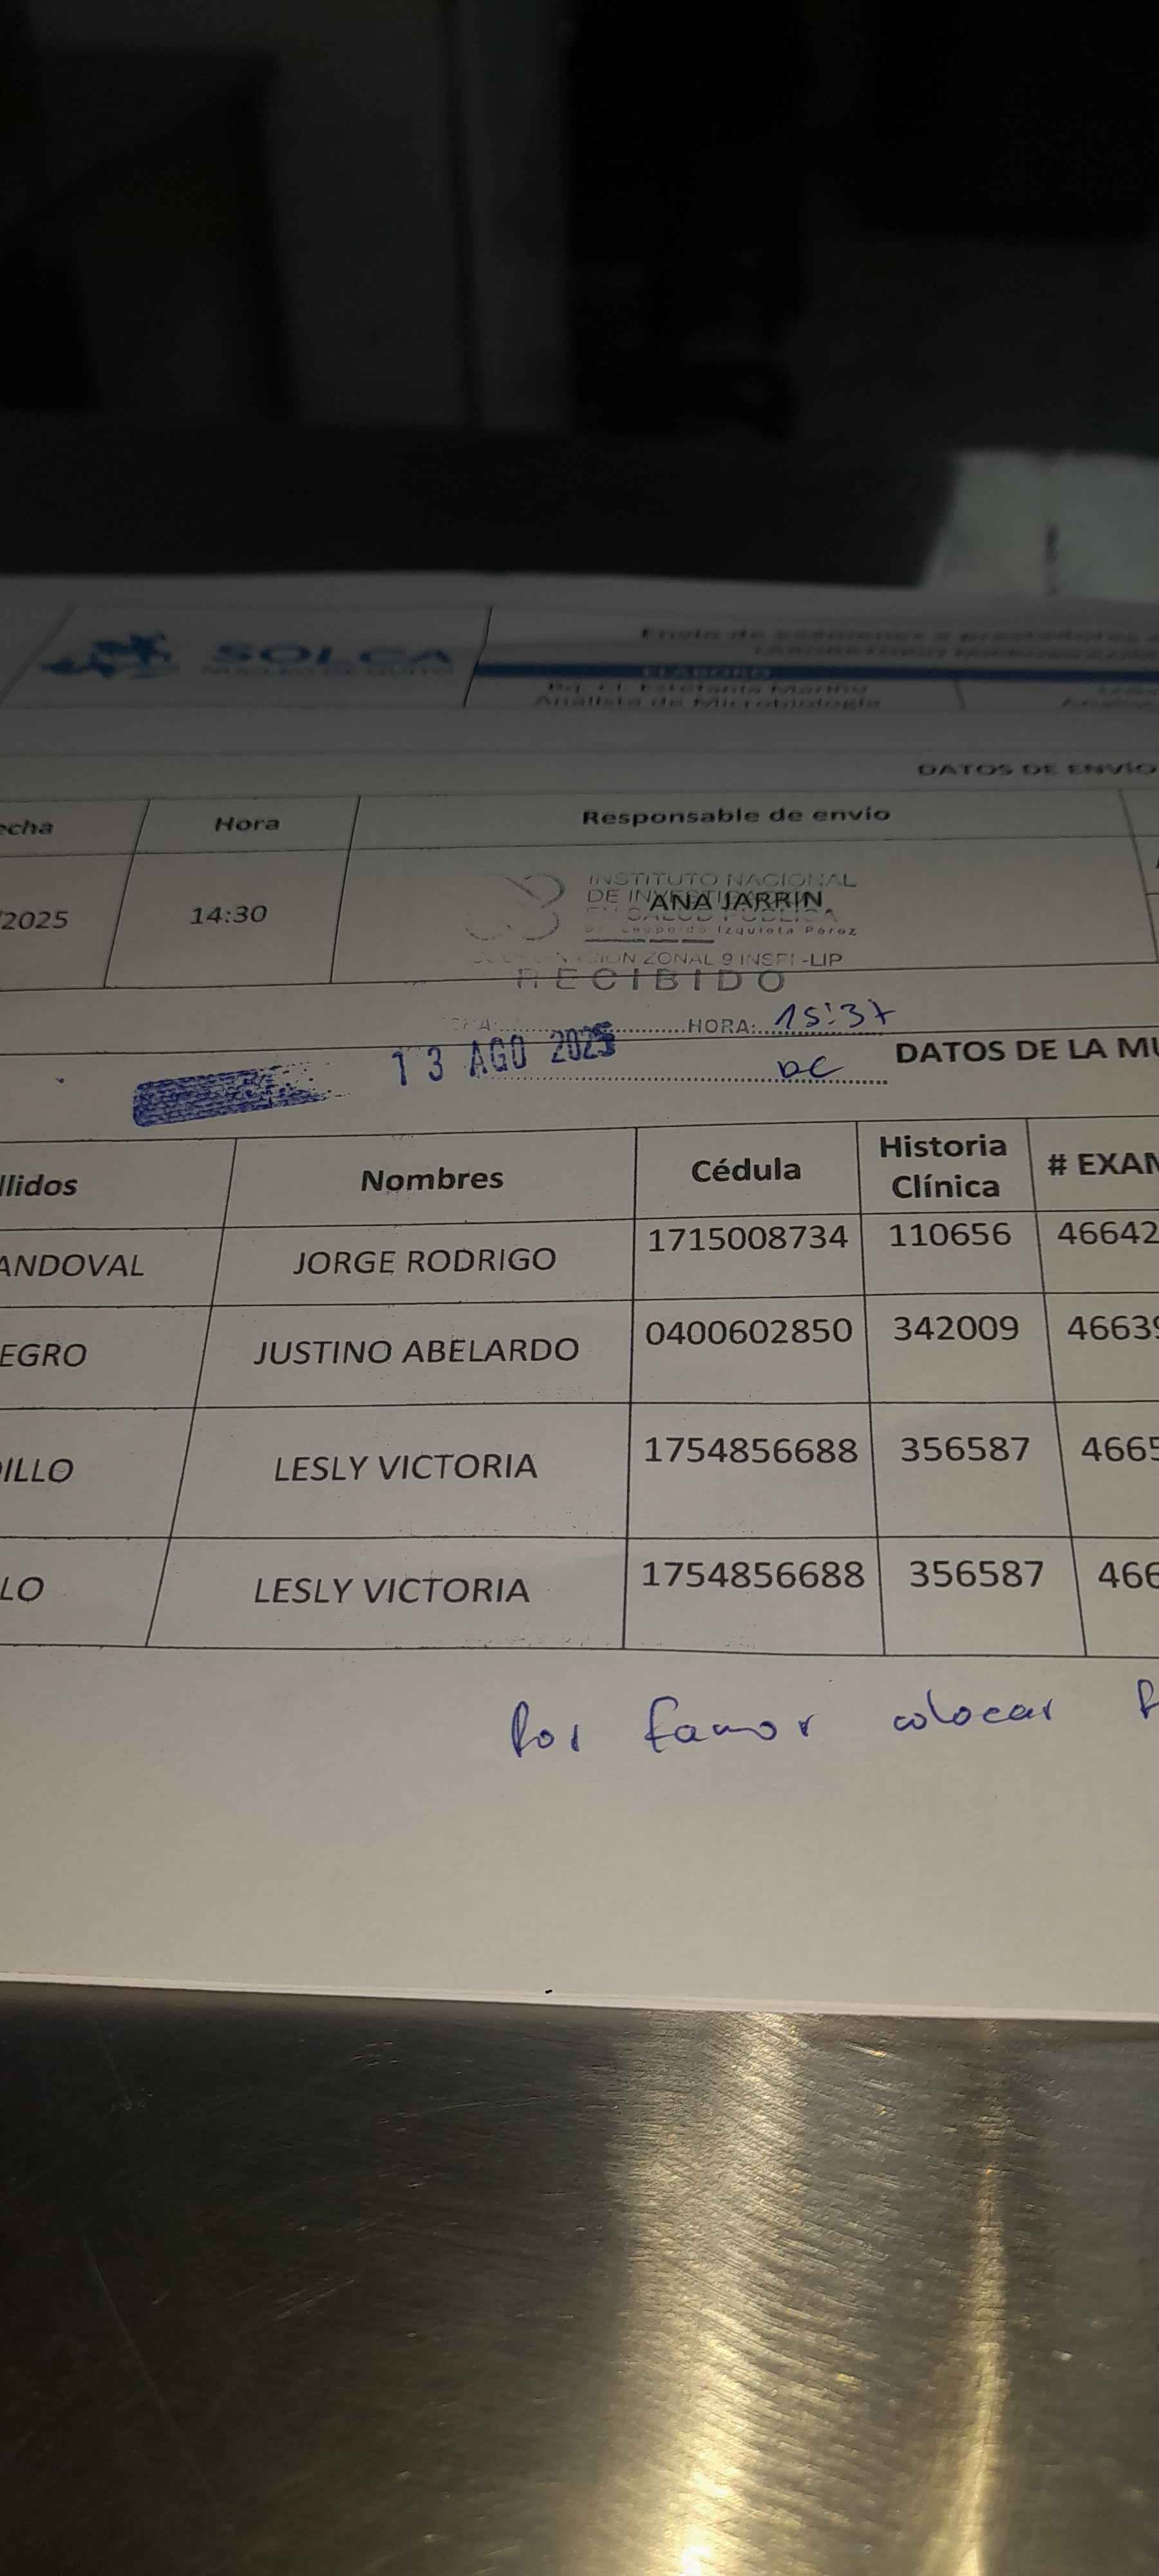 SOLCA
NÚCLEO DE QUITO
Envío de exámenes a prestadores
ELABORÓ
Bq. Cl. Estefanía Mariño
Analista de Microbiología
DATOS DE ENVÍO
echa Hora Responsable de envío
/2025 14:30 ANA JARRIN
INSTITUTO NACIONAL
DE INVESTIGACIÓN
EN SALUD PÚBLICA
Dr. Leopoldo Izquieta Pérez
ZONAL 9 INSPI -LIP
RECIBIDO
HORA: 15:37
13 AGO 2025
DATOS DE LA MU
llidos Nombres Cédula Historia Clínica # EXAM
ANDOVAL JORGE RODRIGO 1715008734 110656 46642
EGRO JUSTINO ABELARDO 0400602850 342009 46639
DILLO LESLY VICTORIA 1754856688 356587 4665
LO LESLY VICTORIA 1754856688 356587 466
Por favor colocar